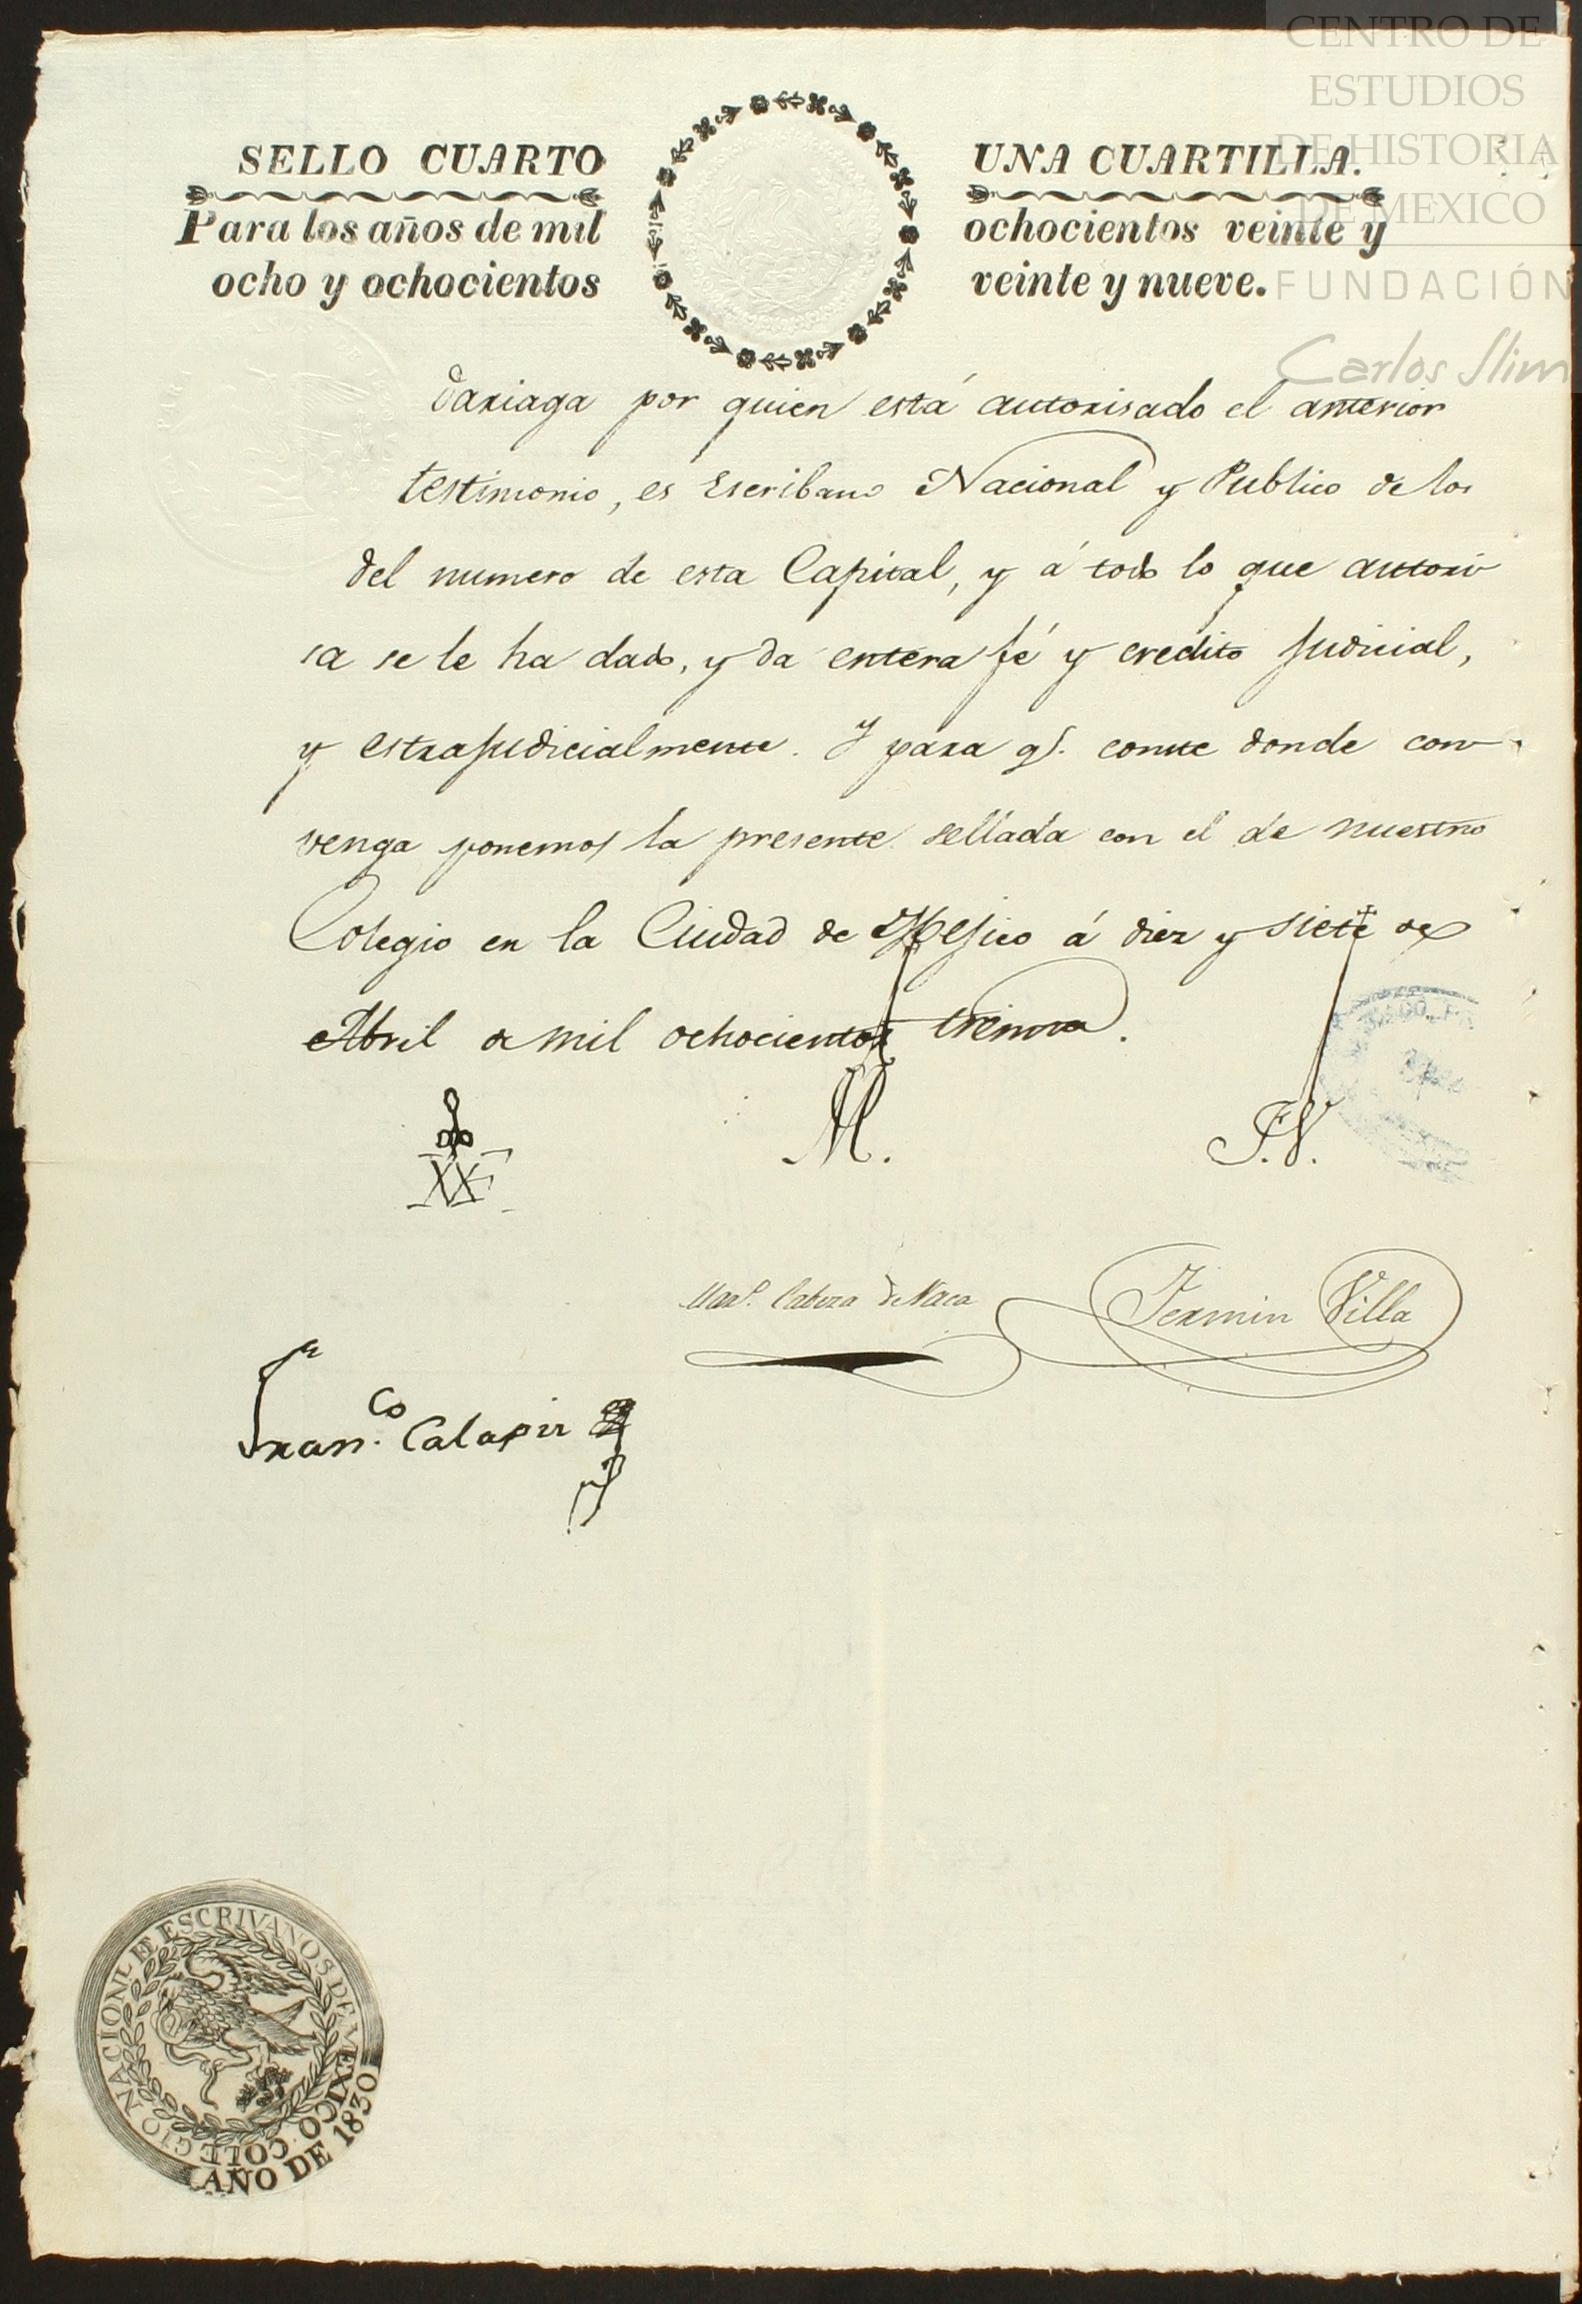 CENTRO DE
ESTUDIOS
DE HISTORIA
DE MEXICO
FUNDACIÓN
Carlos Slim
SELLO CUARTO UNA CUARTILLA.
Para los años de mil ochocientos veinte y
ocho y ochocientos veinte y nueve.
dariaga por quien está autorisado el anterior
testimonio, es Escribano Nacional y Publico de los
del numero de esta Capital, y á todo lo que autori
sa se le ha dado, y da entera fé y credito judicial,
y estrajudicialmente. Y para qe. conste donde con
venga ponemos la presente sellada con el de nuestro
Colegio en la Ciudad de Mejico á diez y siete de
Abril de mil ochocientos treinta.
M. F.V.
Manl. Cabeza de Vaca Fermin Villa
Franco. Calapiz
COLEGIO NACIONL DE ESCRIVANOS DE MEXICO.
AÑO DE 1830